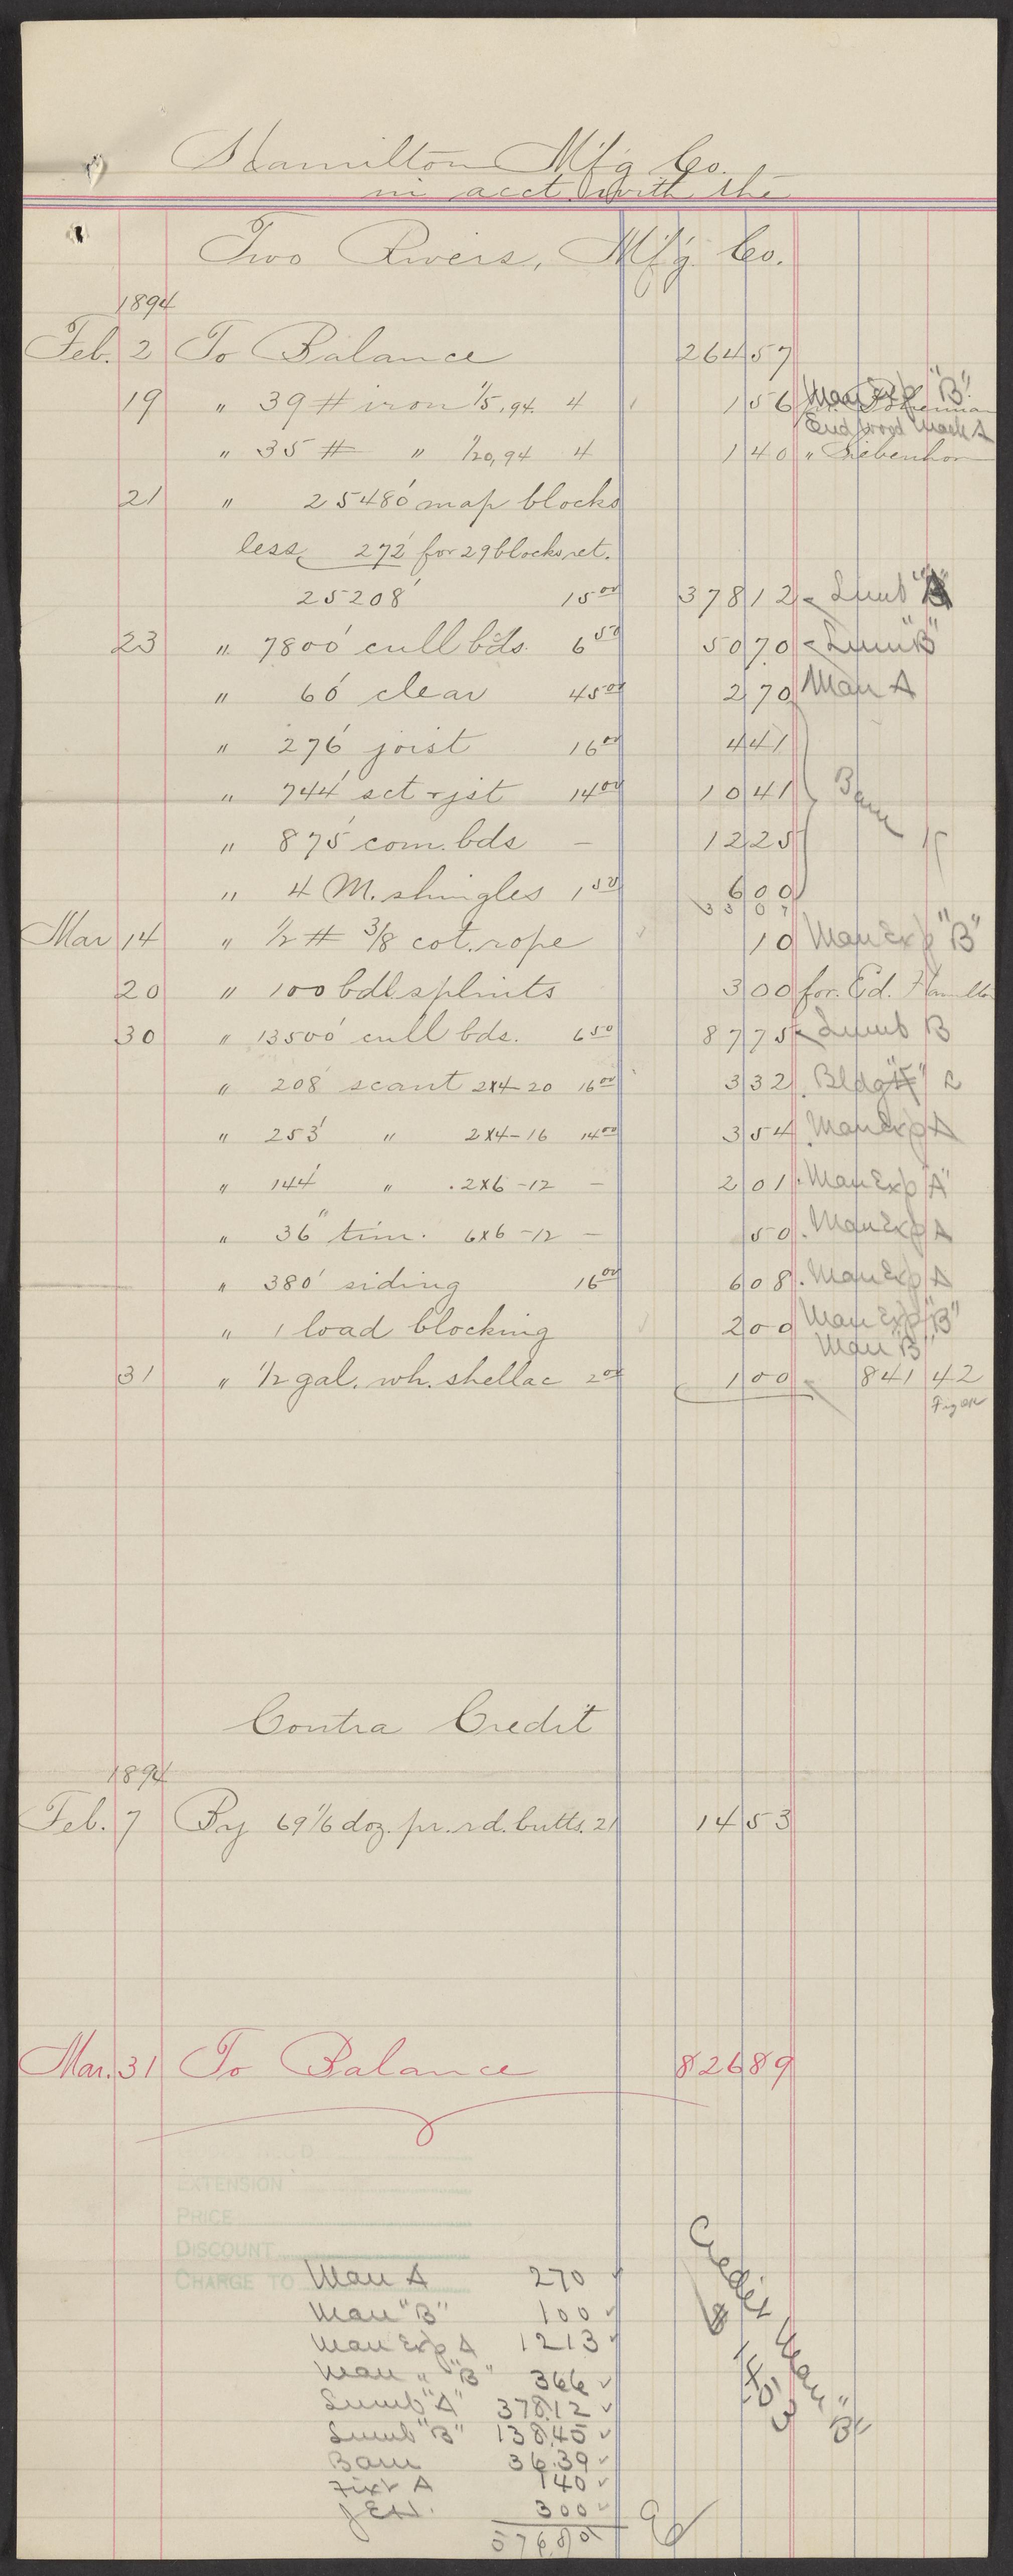 Hamilton Mf'g Co.
in acct. with the
Two Rivers, Mf'g. Co.
1894
Feb. 2 To Balance 264 57
19 " 39 # iron 1/5, 94. 4 1 56 Man Exp "B"
End Wood Mach A
" 35 # " 1/20, 94 4 1 40 " Siebenhorn
21 " 25480' map blocks
less 272' for 29 blocks ret.
25208' 15 00 378 12 Lumb "A"
23 " 7800' cull bds. 6 50 50 70 Lum "B"
" 60' clear 45 00 2 70 Man A
" 276' joist 16 00 4 41
" 744' sct + jst 14 00 10 41 Barn
" 875' com. bds - 12 25
" 4 M. shingles 1 50 6 00
33 07
Mar 14 " 1/2 # 3/8 cot. rope 10 Man Exp "B"
20 " 100 bdl splints 3 00 for. Ed. Hamilton
30 " 13500' cull bds. 6 50 87 75 Lumb B
" 208' scant 2x4-20 16 00 3 32 Bldg
" 253' " 2x4-16 14 00 3 54 Man Exp A
" 144' " 2x6-12 - 2 01 Man Exp "A"
" 36" tim. 6x6-12 - 50 Man Exp A
" 380' siding 16 00 6 08 Man Exp A
" 1 load blocking 2 00 Man Exp "B"
Man "B"
31 " 1/2 gal. wh. shellac 2 00 1 00 841 42
Contra Credit
1894
Feb. 7 By 69 1/6 doz. pr. rd. butts. 21 14 53
Mar. 31 To Balance 826 89
EXTENSION
PRICE
DISCOUNT
CHARGE TO Man A 270
Man "B" 100
Man Exp A 1213
Man " "B" 366
Lumb "A" 378.12
Lumb "B" 138.45
Barn 36.39
Fixt A 140
JEH. 300
576.85
Credit Man "B"
14.53